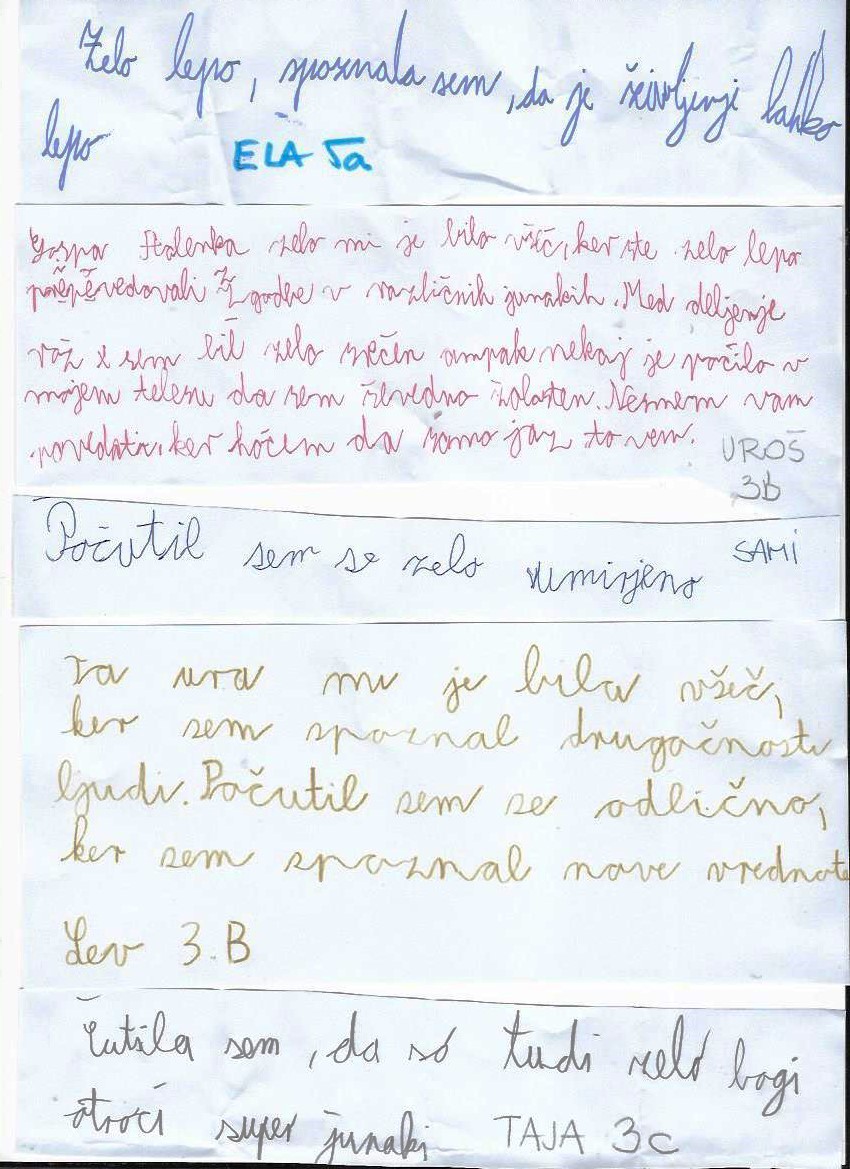 Zelo lepo, spoznala sem, da je življenji lahko
lepo ELA 5a
Gospa Alenka zelo mi je bilo všeč, ker ste zelo lepo
pripovedovali zgodbe v različnih junakih. Med deljenje
rož x sem bil zelo srečen ampak nekaj je počilo v
mojem telesu da sem ževedno žalosten. Nesmem vam
povedati, ker hočem da samo jaz to vem. UROŠ
3b
Počutil sem se zelo umirjeno SAMI
Ta ura mi je bila všeč,
ker sem spoznal drugačnost
ljudi. Počutil sem se odlično,
ker sem spoznal nove vrednote
Lev 3.B
Čutila sem, da so tudi zelo bogi
otroci super junaki TAJA 3c